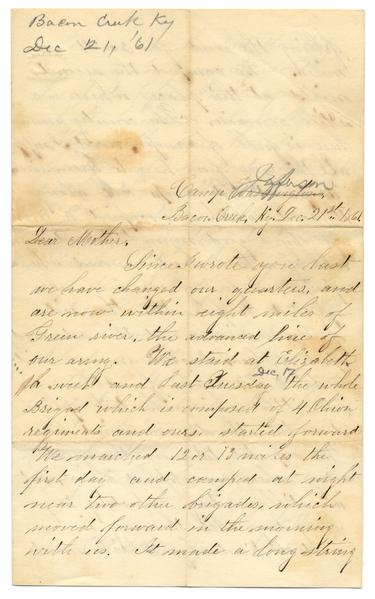 Bacon Creek Ky
Dec 21, '61
Jefferson
Camp Washington
Bacon Creek, Ky. Dec. 21st 1861
Dear Mother,
Since I wrote you last
we have changed our quarters, and
are now within eight miles of
Green river, the advanced line of
our army. We staid at Elizabeth
Dec, 17
a week and last Tuesday the whole
Brigad which is composed of 4 Ohion
regiments and ours, started forward
We marched 12 or 13 miles the
first day and camped at night
near two other brigades, which
moved forward in the morning
with us. It made a long string